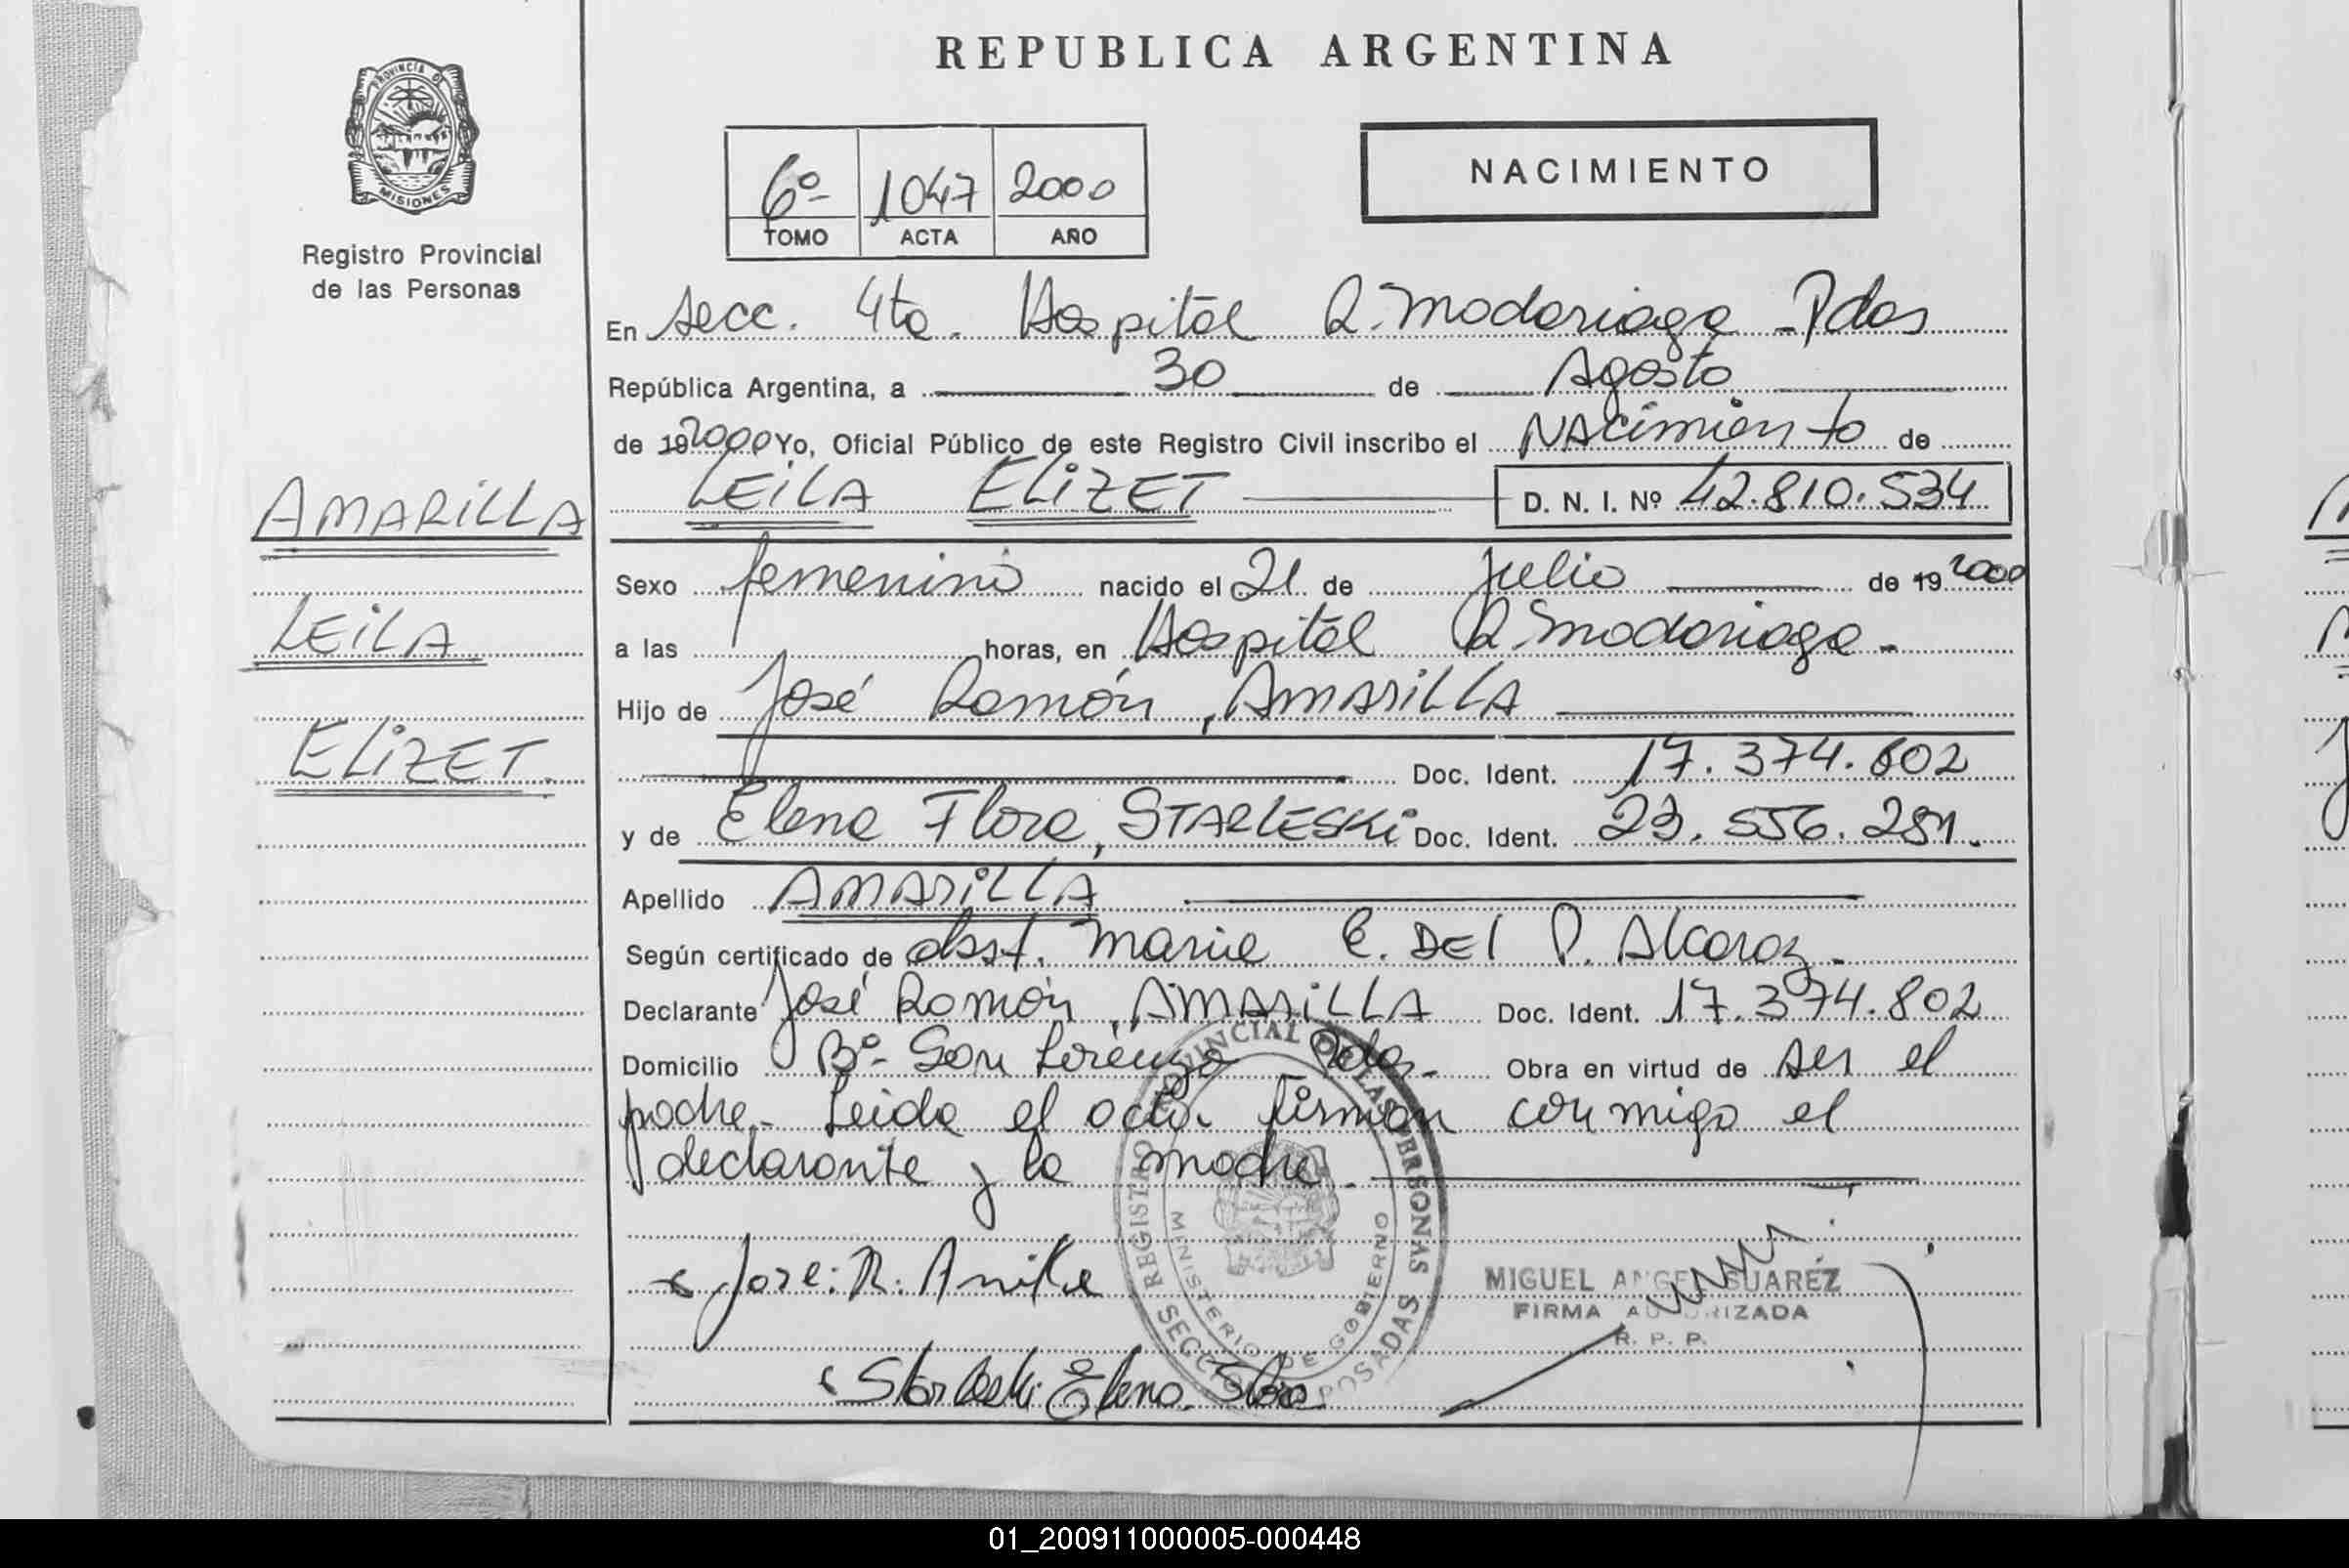 REPUBLICA ARGENTINA
PROVINCIA DE
MISIONES
Registro Provincial
de las Personas
6º 1047 2000
TOMO ACTA AÑO
NACIMIENTO
En secc. 4ta. Hospital R. Madariaga - Pdas
República Argentina, a 30 de Agosto
de 19 2000 Yo, Oficial Público de este Registro Civil inscribo el NAcimiento de
LEILA ELIZET D. N. I. Nº 42.810.534
AMARILLA
LEILA
ELIZET.
Sexo femenino nacido el 21 de Julio de 19 2000
a las horas, en Hospital R. Madariaga -
Hijo de José Ramón, AMARILLA
Doc. Ident. 17.374.802
y de Elena Flora, STARLESKi Doc. Ident. 23.556.281.
Apellido AMARILLA
Según certificado de obst. Maria E. DEl P. Alcaraz -
Declarante José Ramón, AMARILLA Doc. Ident. 17.374.802
Domicilio Bº San Lorenzo Pdas - Obra en virtud de ser el
padre - Leida el acta firman conmigo el
declarante y la madre.
REGISTRO PROVINCIAL DE LAS PERSONAS
MINISTERIO DE GOBIERNO
POSADAS
Jose: R.
MIGUEL ANGEL SUAREZ
FIRMA AUTORIZADA
R. P. P.
Starleski Elena Flora
01_200911000005-000448